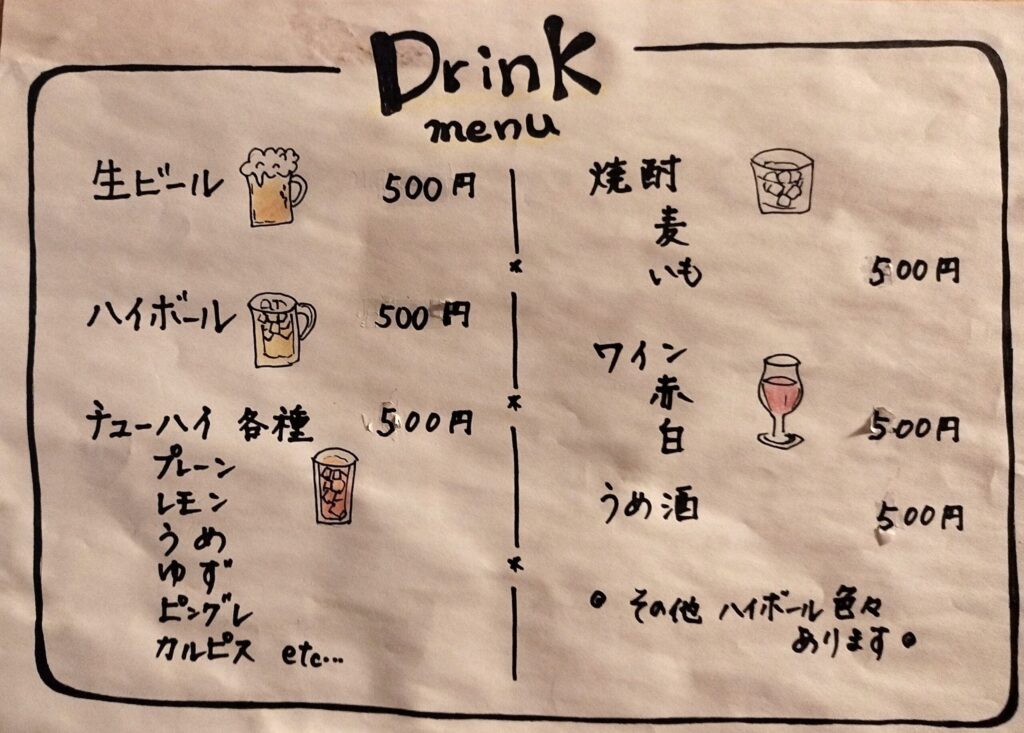 Drink
menu
生ビール 500円
ハイボール 500円
チューハイ 各種 500円
プレーン
レモン
うめ
ゆず
ピングレ
カルピス etc...
焼酎
麦
いも 500円
ワイン
赤
白 500円
うめ酒 500円
• その他 ハイボール 色々
あります •